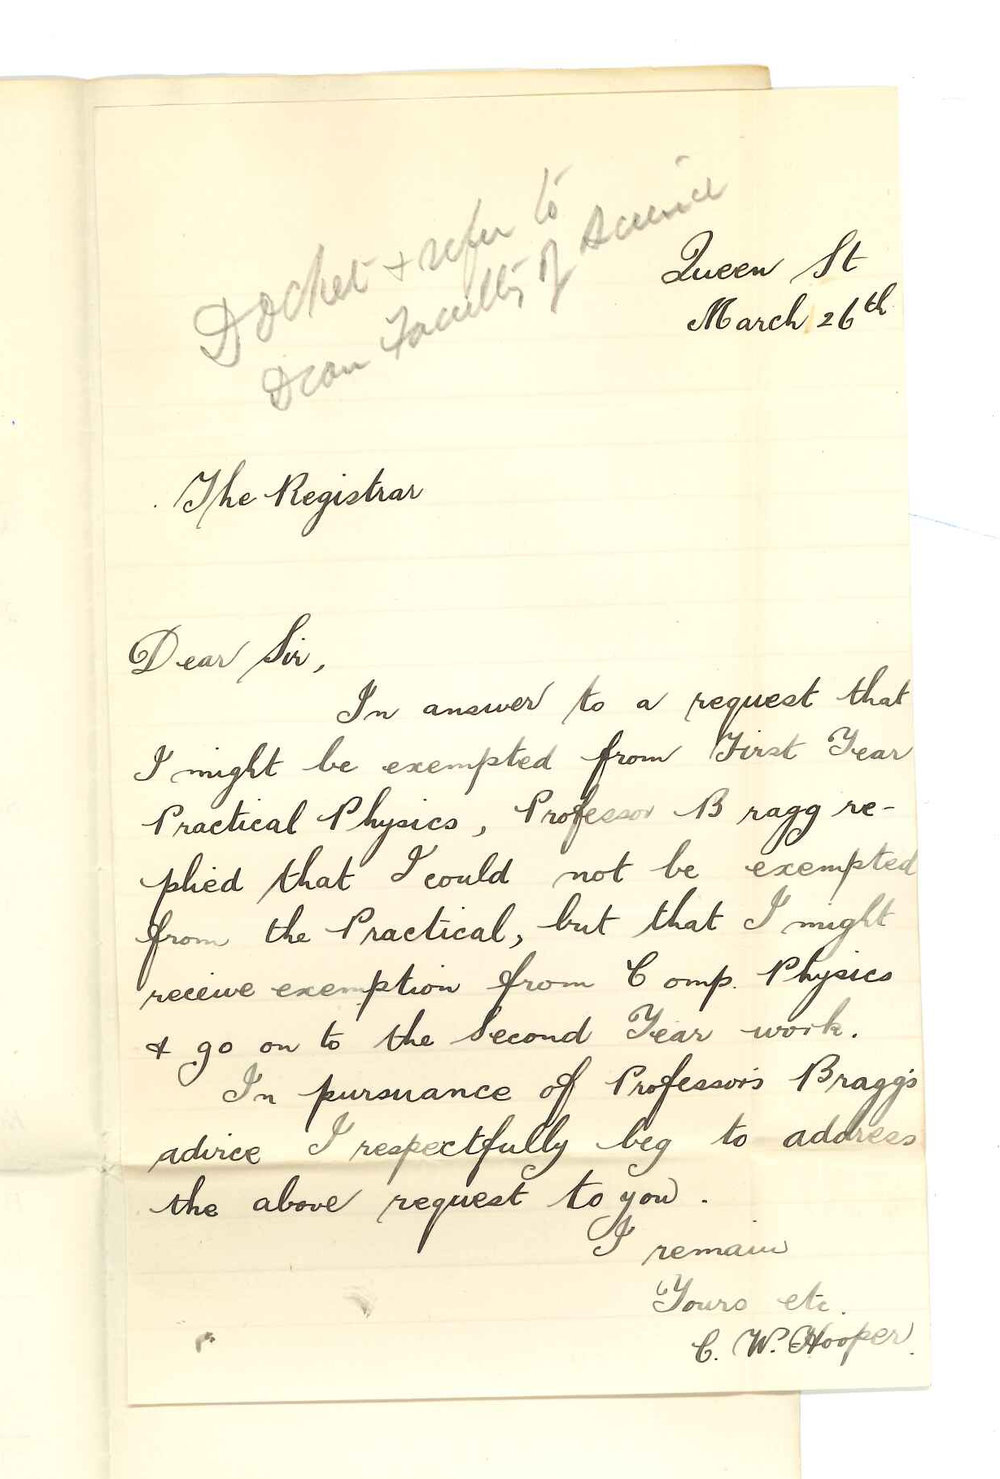 Docket & refer to
Dean Faculty of Science
Queen St
March 26th
The Registrar
Dear Sir,
In answer to a request that
I might be exempted from First Year
Practical Physics, Professor Bragg re-
plied that I could not be exempted
from the Practical, but that I might
receive exemption from Comp. Physics
& go on to the Second Year work.
In pursuance of Professor's Bragg's
advice I respectfully beg to address
the above request to you.
I remain
Yours etc.
C. W. Hooper.